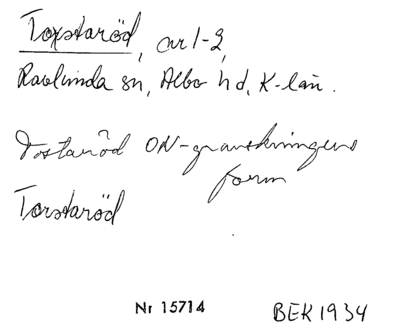 Torstaröd, nr 1-2,
Ravlunda sn, Albo hd, K-län.
Tostaröd ON-granskningens
form
Torstaröd
Nr 15714 BEK 1934